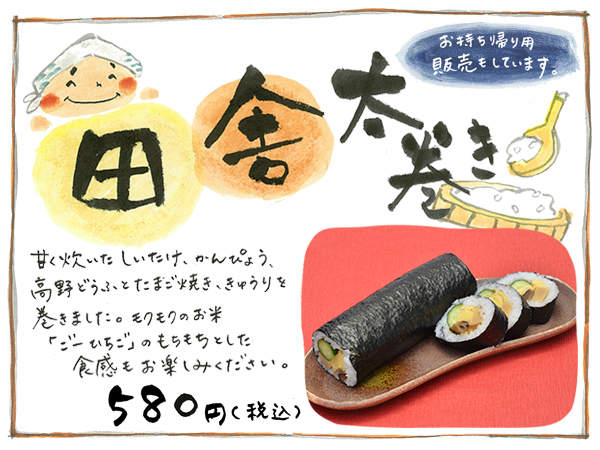 お持ち帰り用
販売もしています。
田舎太巻き
甘く炊いたしいたけ、かんぴょう、
高野どうふとたまご焼き、きゅうりを
巻きました。モクモクのお米
「ごーひちご」のもちもちとした
食感もお楽しみください。
580円(税込)